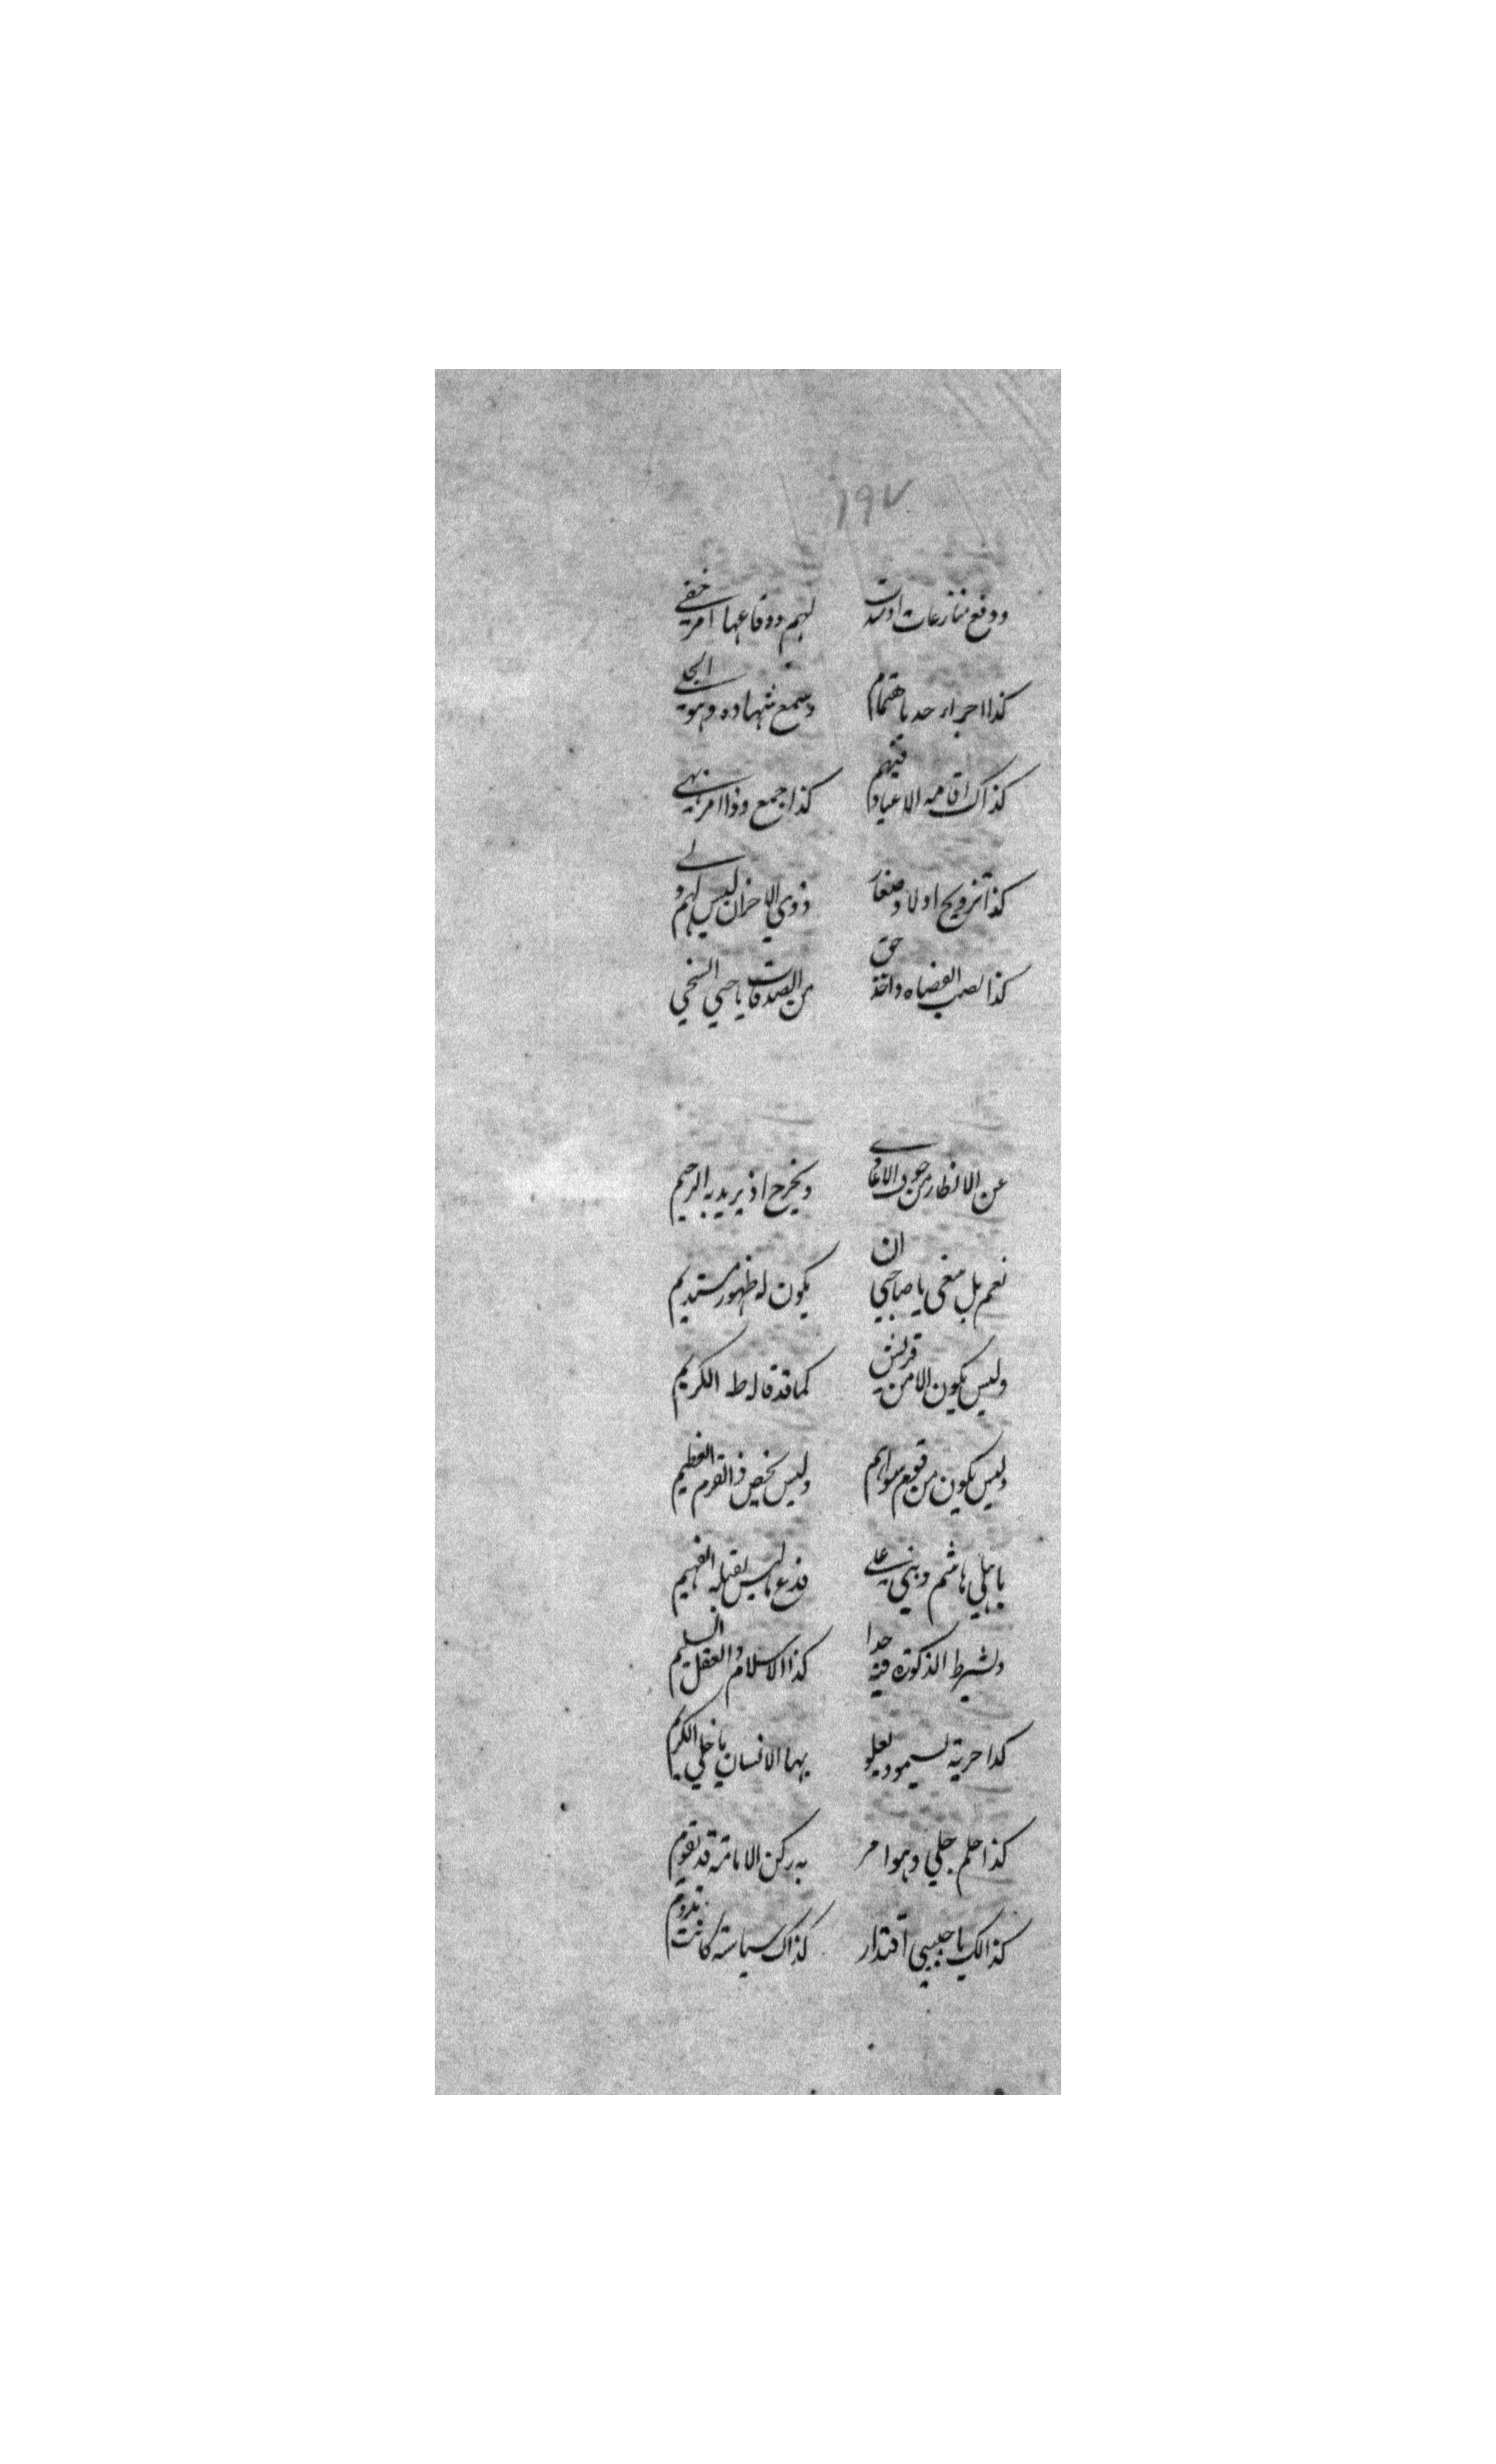 ١٩٧
ودفع منازعات اوقدت لهم ووقاعها امر خفي
كذا اجراء حد باهتمام وسمع شهاده وهو الجلي
كذاك اقامه الاعياد فيهم كذا جمع وذا امر بهي
كذا تزويج اولاد صغار ذوي الاحزان ليس لهم ولي
كذا نصب القضاه واخذ حق من الصدقات يا صبي السخي
عن الانظار من خوف الاعادي ويخرج اذ يريد به الرحيم
نعم بل ينبغي يا صاحبي ان يكون له ظهور مستديم
وليس يكون الا من قريش كما قد قاله طه الكريم
وليس يكون من قوم سواهم وليس يخص ذا القرم العظيم
باهلي هاشم وبني علي فدع ما ليس يقبله الفهيم
ولشرط الذكورة فيه جدا كذا الاسلام والعقل السليم
كذا حرية يسمو ويعلو بها الانسان يا خلي الكريم
كذا حلم جلي وهو امر به ركن الامامة قد تقوم
كذالك يا حبيبي اقتدار كذاك سياسة كانت تدوم